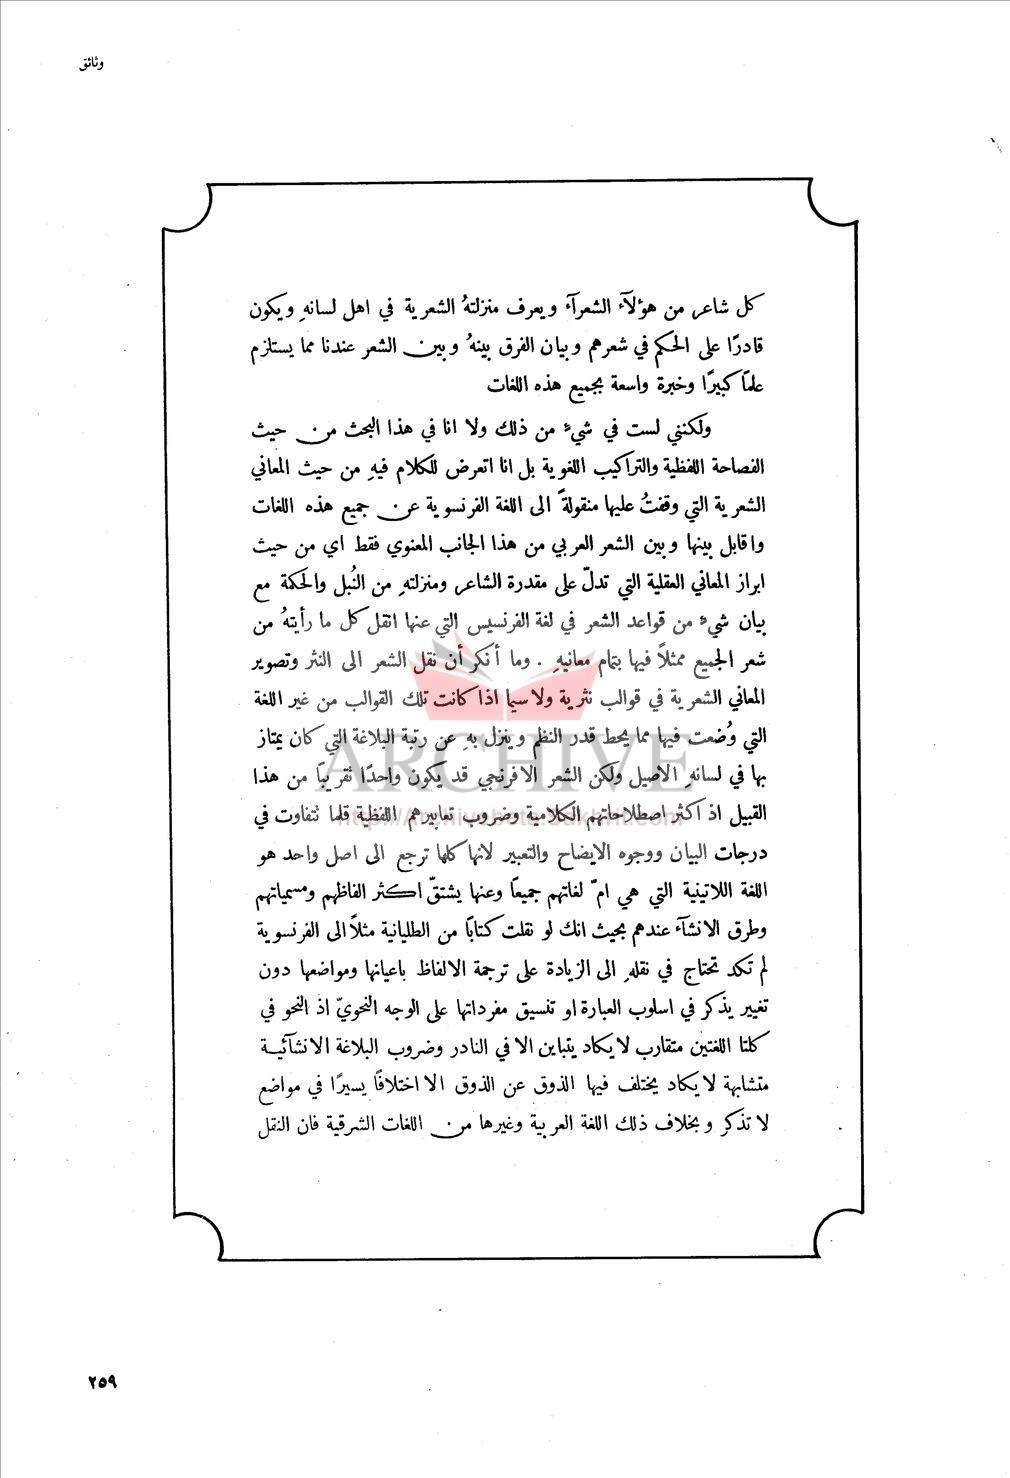 وثائق
كل شاعر من هؤلآء الشعرآء ويعرف منزلتهُ الشعرية في اهل لسانهِ ويكون
قادرًا على الحكم في شعرهم وبيان الفرق بينهُ وبين الشعر عندنا مما يستلزم
علمًا كبيرًا وخبرة واسعة بجميع هذه اللغات
ولكنني لست في شيءٍ من ذلك ولا انا في هذا البحث من حيث
الفصاحة اللفظية والتراكيب اللغوية بل انا اتعرض للكلام فيهِ من حيث المعاني
الشعرية التي وقفتُ عليها منقولةً الى اللغة الفرنسوية عن جميع هذه اللغات
واقابل بينها وبين الشعر العربي من هذا الجانب المعنوي فقط اي من حيث
ابراز المعاني العقلية التي تدلّ على مقدرة الشاعر ومنزلتهِ من النُبل والحكمة مع
بيان شيءٍ من قواعد الشعر في لغة الفرنسيس التي عنها انقل كل ما رأيتهُ من
شعر الجميع ممثلاً فيها بتمام معانيهِ . وما أنكر أن نقل الشعر الى النثر وتصوير
المعاني الشعرية في قوالب نثرية ولا سيما اذا كانت تلك القوالب من غير اللغة
التي وُضعت فيها مما يحط قدر النظم وينزل بهِ عن رتبة البلاغة التي كان يمتاز
بها في لسانهِ الاصيل ولكن الشعر الافرنجي قد يكون واحدًا تقريبًا من هذا
القبيل اذ اكثر اصطلاحاتهم الكلامية وضروب تعابيرهم اللفظية قلما تتفاوت في
درجات البيان ووجوه الايضاح والتعبير لانها كلها ترجع الى اصل واحد هو
اللغة اللاتينية التي هي امّ لغاتهم جميعًا وعنها يشتقّ اكثر الفاظهم ومسمياتهم
وطرق الانشآء عندهم بحيث انك لو نقلت كتابًا من الطليانية مثلاً الى الفرنسوية
لم تكد تحتاج في نقلهِ الى الزيادة على ترجمة الالفاظ باعيانها ومواضعها دون
تغيير يذكر في اسلوب العبارة او تنسيق مفرداتها على الوجه النحويّ اذ النحو في
كلتا اللغتين متقارب لا يكاد يتباين الا في النادر وضروب البلاغة الانشآئية
متشابهة لا يكاد يختلف فيها الذوق عن الذوق الا اختلافًا يسيرًا في مواضع
لا تذكر وبخلاف ذلك اللغة العربية وغيرها من اللغات الشرقية فان النقل
ARCHIVE
http://Archivebeta.Sakhrit.com
٢٥٩